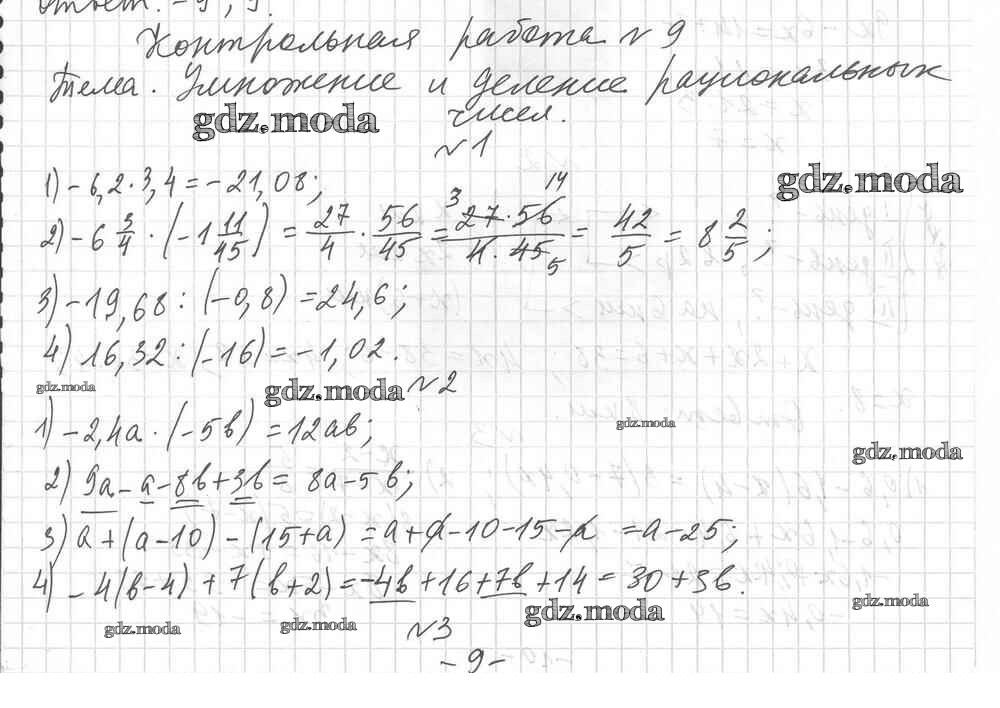 Ответ: -9; 9.
Контрольная работа №9
Тема. Умножение и деление рациональных
чисел.
gdz.moda
№1
gdz.moda
1) -6,2·3,4 = -21,08;
2) -6 3/4 · (-1 11/45) = 27/4 · 56/45 = 27·56/4·45 = 42/5 = 8 2/5;
3) -19,68 : (-0,8) = 24,6;
4) 16,32 : (-16) = -1,02.
gdz.moda gdz.moda №2
1) -2,4a · (-5b) = 12ab;
gdz.moda
gdz.moda
2) 9a - a - 8b + 3b = 8a - 5b;
3) a + (a-10) - (15+a) = a + a - 10 - 15 - a = a - 25;
4) -4(b-4) + 7(b+2) = -4b + 16 + 7b + 14 = 30 + 3b.
gdz.moda gdz.moda
gdz.moda gdz.moda №3
-9-